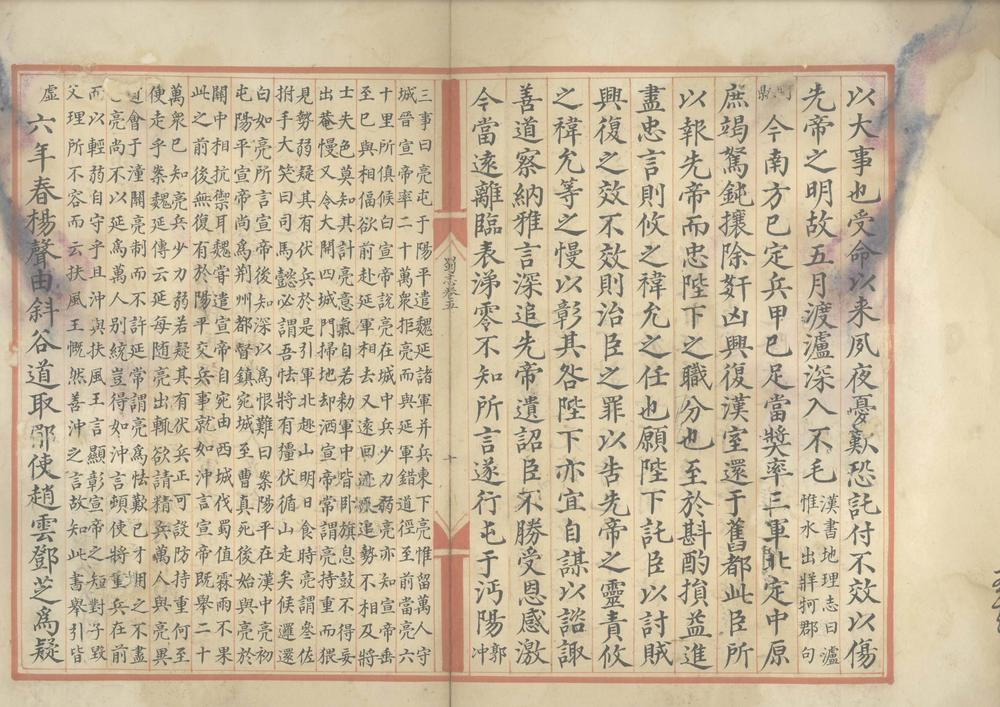 以大事也受命以来夙夜憂歎恐託付不效以傷
先帝之明故五月渡瀘深入不毛
漢書地理志曰瀘
惟水出牂牁郡句
町縣
今南方已定兵甲已足當獎率三軍北定中原
庶竭駑鈍攘除奸凶興復漢室還于舊都此臣所
以報先帝而忠陛下之職分也至於斟酌損益進
盡忠言則攸之禕允之任也願陛下託臣以討賊
興復之效不效則治臣之罪以告先帝之靈責攸
之禕允等之慢以彰其咎陛下亦宜自謀以諮諏
善道察納雅言深追先帝遺詔臣不勝受恩感激
今當遠離臨表涕零不知所言遂行屯于沔陽
郭
沖
蜀志卷五
十
三事曰亮屯于陽平遣魏延諸軍并兵東下亮惟留萬人守
城晉宣帝率二十萬衆拒亮而與延軍錯道徑至前當亮六
十里所偵候白宣帝說亮在城中兵少力弱亮亦知宣帝垂
至已與相偪欲前赴延軍相去又遠回迹追勢不相及將
士失色莫知其計亮意氣自若勑軍中皆卧旗息鼓不得妄
出菴幔又令大開四城門掃地却洒宣帝常謂亮持重而猥
見勢弱疑其有伏兵於是引軍北趣山明日食時亮謂叅佐
拊手大笑曰司馬懿必謂吾怯將有彊伏循山走矣候邏還
白如亮所言宣帝後知深以爲恨難曰案陽平在漢中亮初
屯陽平宣帝尚爲荆州都督鎮宛城至曹真死後始與亮於
關中相抗禦耳魏嘗遣宣帝自宛由西城伐蜀值霖雨不果
此之前後無復有於陽平交兵事就如沖言宣帝既舉二十
萬衆已知亮兵少力弱若疑其有伏兵正可設防持重何至
便走乎案魏延傳云延每随亮出輒欲請精兵萬人與亮異
道會于潼關亮制而不許延常謂亮爲怯歎已才用之不盡
亮尚不以延爲萬人別統豈得如沖言頓使將重兵在前
而以輕弱自守乎且沖與扶風王言顯彰宣帝之短對子毀
父理所不容而云扶風王慨然善沖之言故知此書舉引皆
虛
六年春楊聲由斜谷道取郿使趙雲鄧芝爲疑